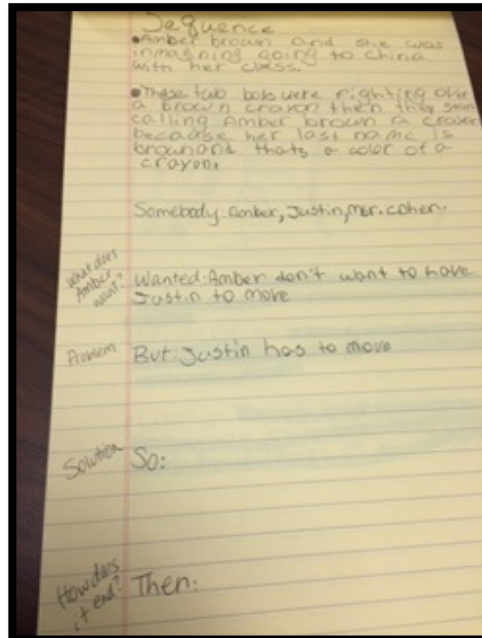 Sequence
•Amber brown and she was
inmagning going to china
with her class.
•These two bols were righting over
a brown crayon then they
calling Amber brown a crayon
because her last name is
brown and thats a color of a
crayon.
Somebody: Amber, Justin, mr. cohen.
What does
Amber
want?
Wanted: Amber don't want to have
Justin to move
Problem
But: Justin has to move
Solution
So:
How does
it end?
Then: